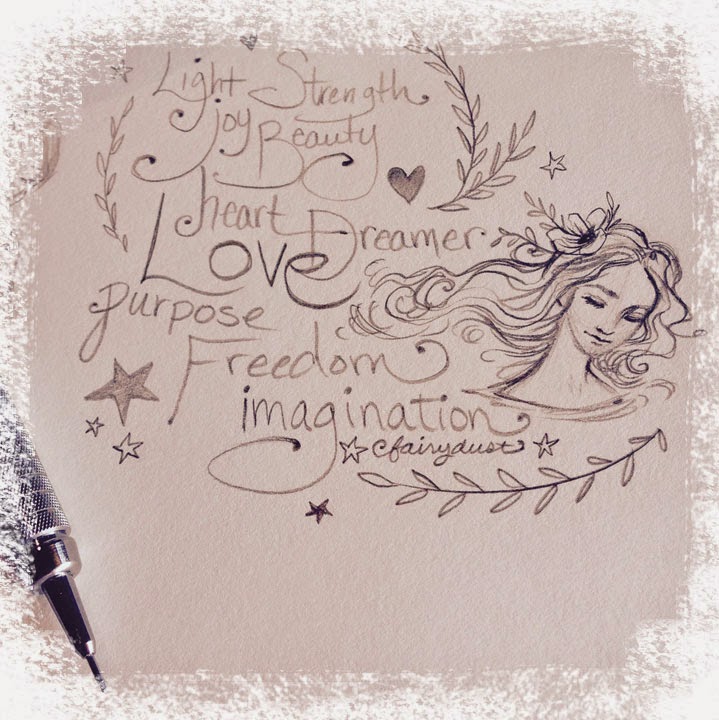 Light Strength
Joy Beauty
heart Dreamer
Love
purpose
Freedom
imagination
cfairydust